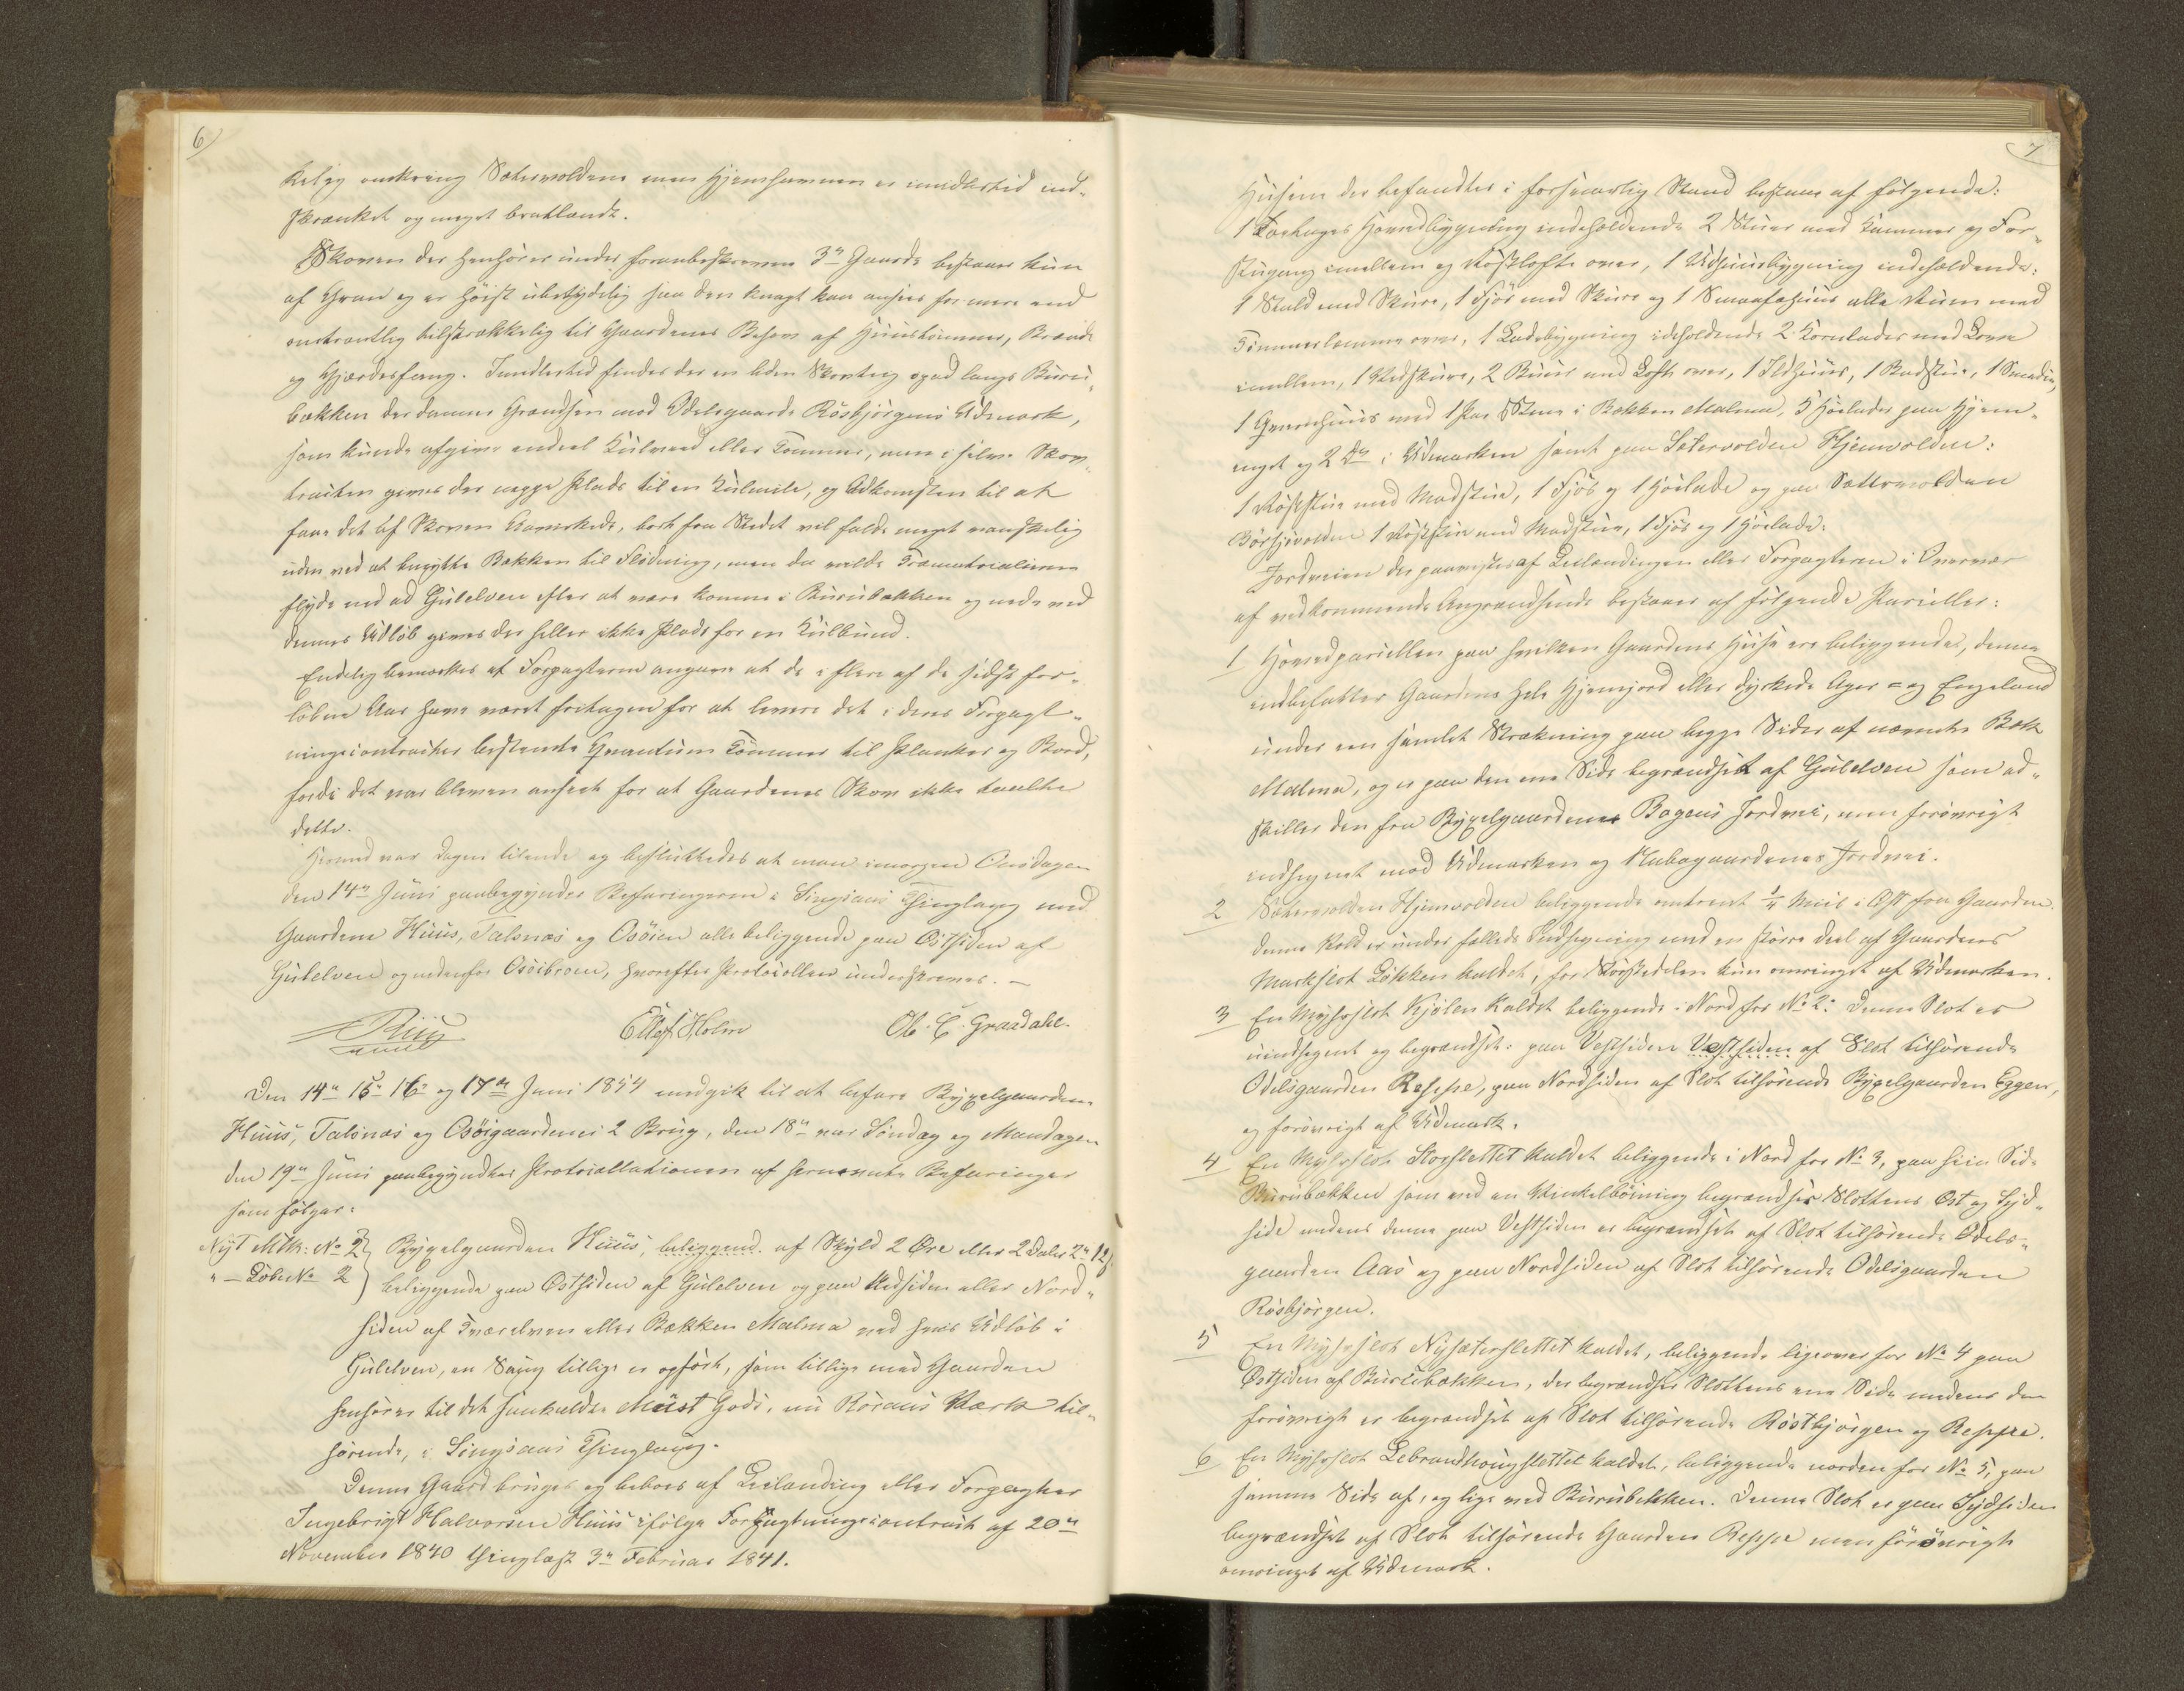 6
Relig omkring Sætervoldene men Hjemhavnen er imidlertid ind-
skrænket og meget bratlændt.
Skoven der henhører under foranbeskrevne 3de Gaarde bestaaer kun
af Gran og er høist ubetydelig saa den knapt kan ansees for mere end
omtrentlig tilstrækkelig til Gaardenes Behov af Huustømmer, Brænde
og Gjærdesfang. Imidlertid findes der en liden Skovteig opad langs Buru-
bækken der danner Grændsen mod Odelsgaarde Røsbjørgens Udmark,
som kunde afgive endeel Kulveed eller Tømmer, men i selve Skov-
trakten gives der neppe Plads til en Kulmile, og Adkomsten til at
faae det af Skoven Avirkede, bort fra Stedet vil falde meget vanskelig
uden ved at benytte Bækken til Flødning, men da vilde Træmaterialierne
flyde ned ad Gulelven efter at være komne i Burubækken og nede ved
dennes Udløb gives der heller ikke Plads for en Kulbund.
Endelig bemærkes at Forpagterne angave at de i flere af de sidst for-
løbne Aar have været fritagen for at levere det i deres Forpagt-
ningscontracter bestemte Qvantum Tømmer til Planker og Bord,
fordi det var bleven anseet for at Gaardenes Skov ikke taalte
dette.
Hermed var Dagen tilende og besluttedes at man imorgen Onsdagen
den 14de Juni paabegynder Befaringerne i Singsaas Thinglaug med
Gaardene Huus, Talsnæs og Osøien alle beliggende paa Østsiden af
Gulelven og nedenfor Osøibroen, hvorefter Protocollen underskreves. —
Riig Ellef Holm Ol. C. Graadahl.
Den 14de 15de 16de og 17de Juni 1854 medgik til at befare Bygselgaardene
Huus, Talsnæs og Osøigaardenes 2 Brug, den 18de var Søndag og Mandagen
den 19de Juni paabegyndtes Protocollationen af hernævnte Befaringer
som følger:
Nyt Mtk: No 2 } Bygselgaarden Huus, beliggend. af Skyld 2 Øre eller 2 Daler 2 " 12 ß.
" — Løbe No 2 } beliggende paa Østsiden af Gulelven og paa Nedsiden eller Nord-
siden af Tværelven eller Bækken Malma ved hvis Udløb i
Gulelven, en Saug tillige er opført, som tillige med Gaarden
henhører til det saakaldte Müst Gods, nu Røraas Værk til-
hørende, i Singsaas Thinglaug.
Denne Gaard bruges og beboes af Leilænding eller Forpagter
Ingebrigt Halvorsen Huus ifølge Forpagtningscontract af 20de
November 1840 thinglæst 3de Februar 1841.
7
Husene der befandtes i forsvarlig Stand bestaaer af følgende:
1 Toetages Hovedbygning indeholdende 2 Stuer med Kammer og For-
stugang imellem og Røstlofte over, 1 Udhuusbygning indeholdende:
1 Stald med Skuur, 1 Fjøs med Skuur og 1 Smaafæhuus alle Rum med
Tømmerlemme over, 1 Ladebygning ideholdende 2 Kornlader med Love
imellem, 1 Vedskuur, 2 Buur med Loft over, 1 Ildhuus, 1 Badstue, 1 Smedie,
1 Qværnhuus med 1 Par Stene i Bækken Malma, 5 Høelader paa Hjem-
enget og 2 Do i Udmarken samt paa Sætervolden Hjemvolden:
1 Røststue med Madstue, 1 Fjøs og 1 Høelade og paa Sættervolden
Børsjøvolden 1 Røststue med Madstue, 1 Fjøs og 1 Høelade:
Jordveien der paavistes af Leilændingen eller Forpagteren i Overvær
af vedkommende Angrændsende bestaaer af følgende Parceller:
1 Hovedparcellen paa hvilken Gaardens Huse ere beliggende, denne
indbefatter Gaardens hele Hjemjord eller dyrkede Ager = og Engeland
under een samlet Strækning paa begge Sider af nævnte Bæk
Malma, og er paa den ene Side begrændset af Gulelven som ad-
skiller den fra Bygselgaardenes Bogens Jordvei, men forøvrigt
indhegnet mod Udmarken og Nabogaardenes Jordvei.
2 Sætervolden Hjemvolden beliggende omtrent 1/4 Miil i Øst fra Gaarden.
denne Vold er under fælleds Indhegning med en større Deel af Gaardens
Markslot Løkken kaldet, for Størstedelen kun omringet af Udmarken.
3 En Myhrslot Kjølen kaldet beliggende i Nord for No 2. Denne Slot er
uindhegnet og begrændset: paa Vestsiden Vestsiden af Slot tilhørende
Odelsgaarden Reppe, paa Nordsiden af Slot tilhørende Bygselgaarden Eggen,
og forøvrigt af Udmark.
4 En Myhrslot Storslettet kaldet beliggende i Nord for No 3, paa hiin Side
Burubækken som ved en Vinkelbøining begrændser Slottens Øst og Syd-
side medens denne paa Vestsiden er begrændset af Slot tilhørende Odels-
gaarden Aas og paa Nordsiden af Slot tilhørende Odelsgaarden
Røsbjørgen.
5 En Myhrslot Nysæterslettet kaldet, beliggende ligeover for No 4 paa
Østsiden af Burubækken, der begrændser Slottens ene Side medens den
forøvrigt er begrændset af Slot tilhørende Røstbjørgen og Reppe.
6 En Myhrslot Lebrandhougslettet kaldet, beliggende norden for No 5, paa
samme Side af, og lige ved Burubekken. Denne Slot er paa Sydsiden
begrændset af Slot tilhørende Gaarden Reppe men forøvrigt
omringet af Udmark.